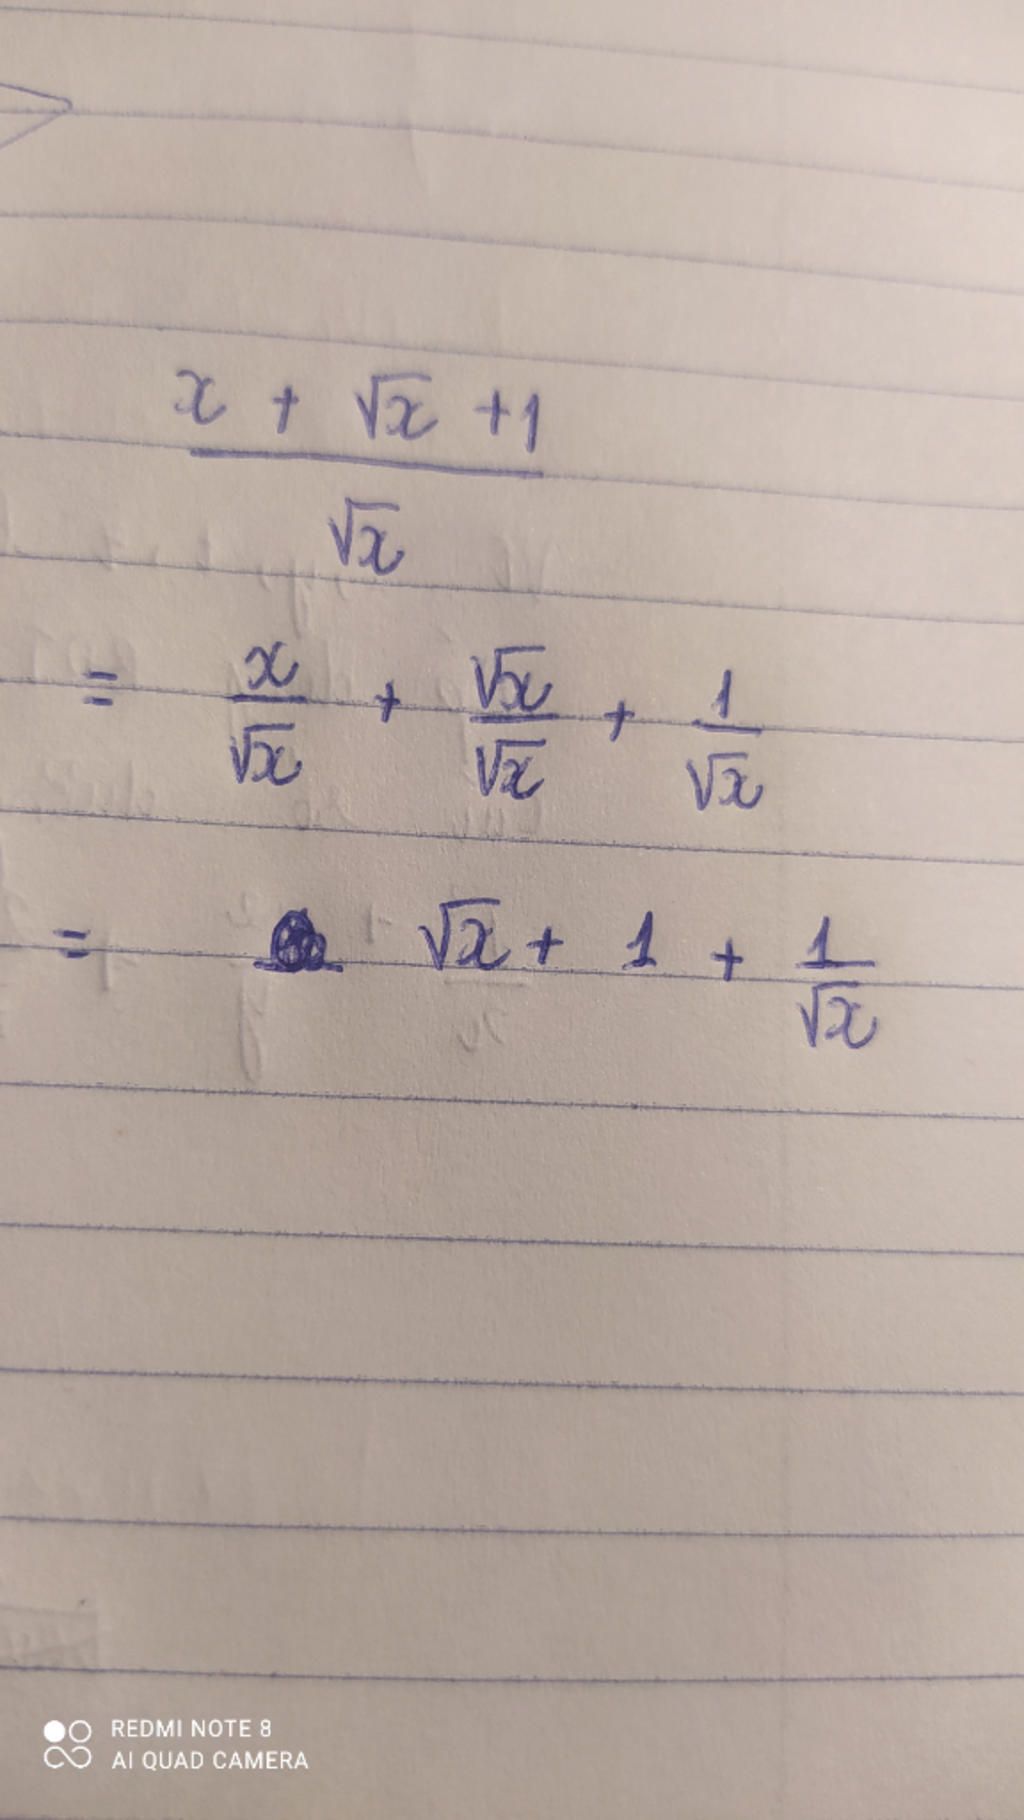 x + √x + 1
√x
= x/√x + √x/√x + 1/√x
= √x + 1 + 1/√x
REDMI NOTE 8
AI QUAD CAMERA